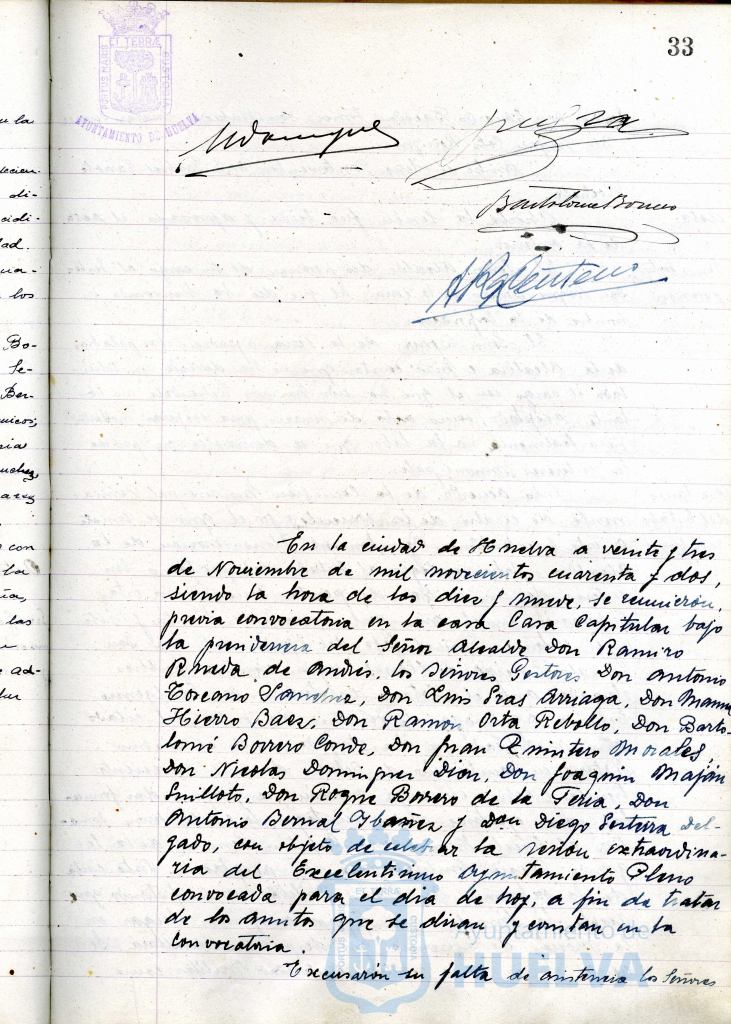 33
PORTUS MARIS ET TERRÆ CUSTODIA
AYUNTAMIENTO DE HUELVA
Bartolome Borrero
En la ciudad de Huelva a veinte y tres
de Noviembre de mil novecientos cuarenta y dos,
siendo la hora de las diez y nueve, se reunieron,
previa convocatoria en la casa Casa Capitular bajo
la presidencia del Señor Alcalde Don Ramiro
Rueda de Andrés, los Señores Gestores Don Antonio
Toscano Sanchez, Don Luis Sras Arriaga, Don Manuel
Hierro Baez, Don Ramon Orta Rebollo, Don Barto-
lomé Borrero Conde, Don Juan Quintero Morales,
Don Nicolas Dominguez Dion, Don Joaquin
Don Roque Borrero de la Feria, Don
Antonio Bernal Ybañez y Don Diego Del-
gado, con objeto de celebrar la sesión extraordina-
ria del Excelentisimo Ayuntamiento Pleno
convocada para el dia de hoy, a fin de tratar
de los asuntos que se diran y constan en la
convocatoria.
Excusarón su falta de asistencia los Señores
Ayuntamiento de
HUELVA
la
di-
cidi-
dad.
los
Bo-
Se-
Ber-
con
la
las
ad-